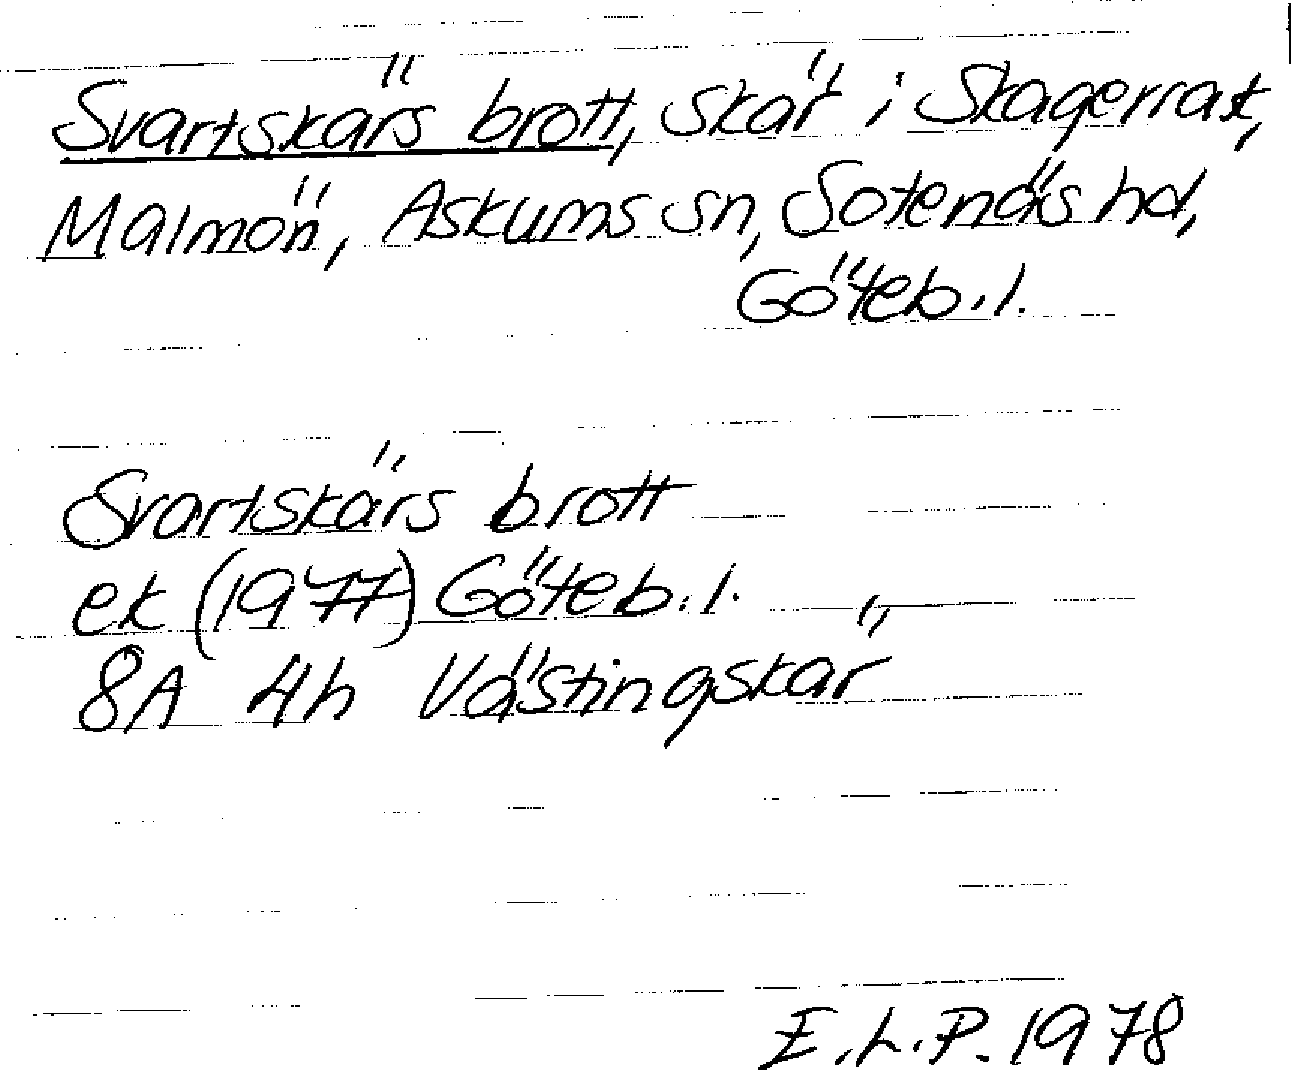 Svartskärs brott, skär i Skagerrak,
Malmön, Askums sn, Sotenäs hd,
Göteb.l.
Svartskärs brott
ek (1977) Göteb.l.
8A 4h Västingskär
E.L.P. 1978